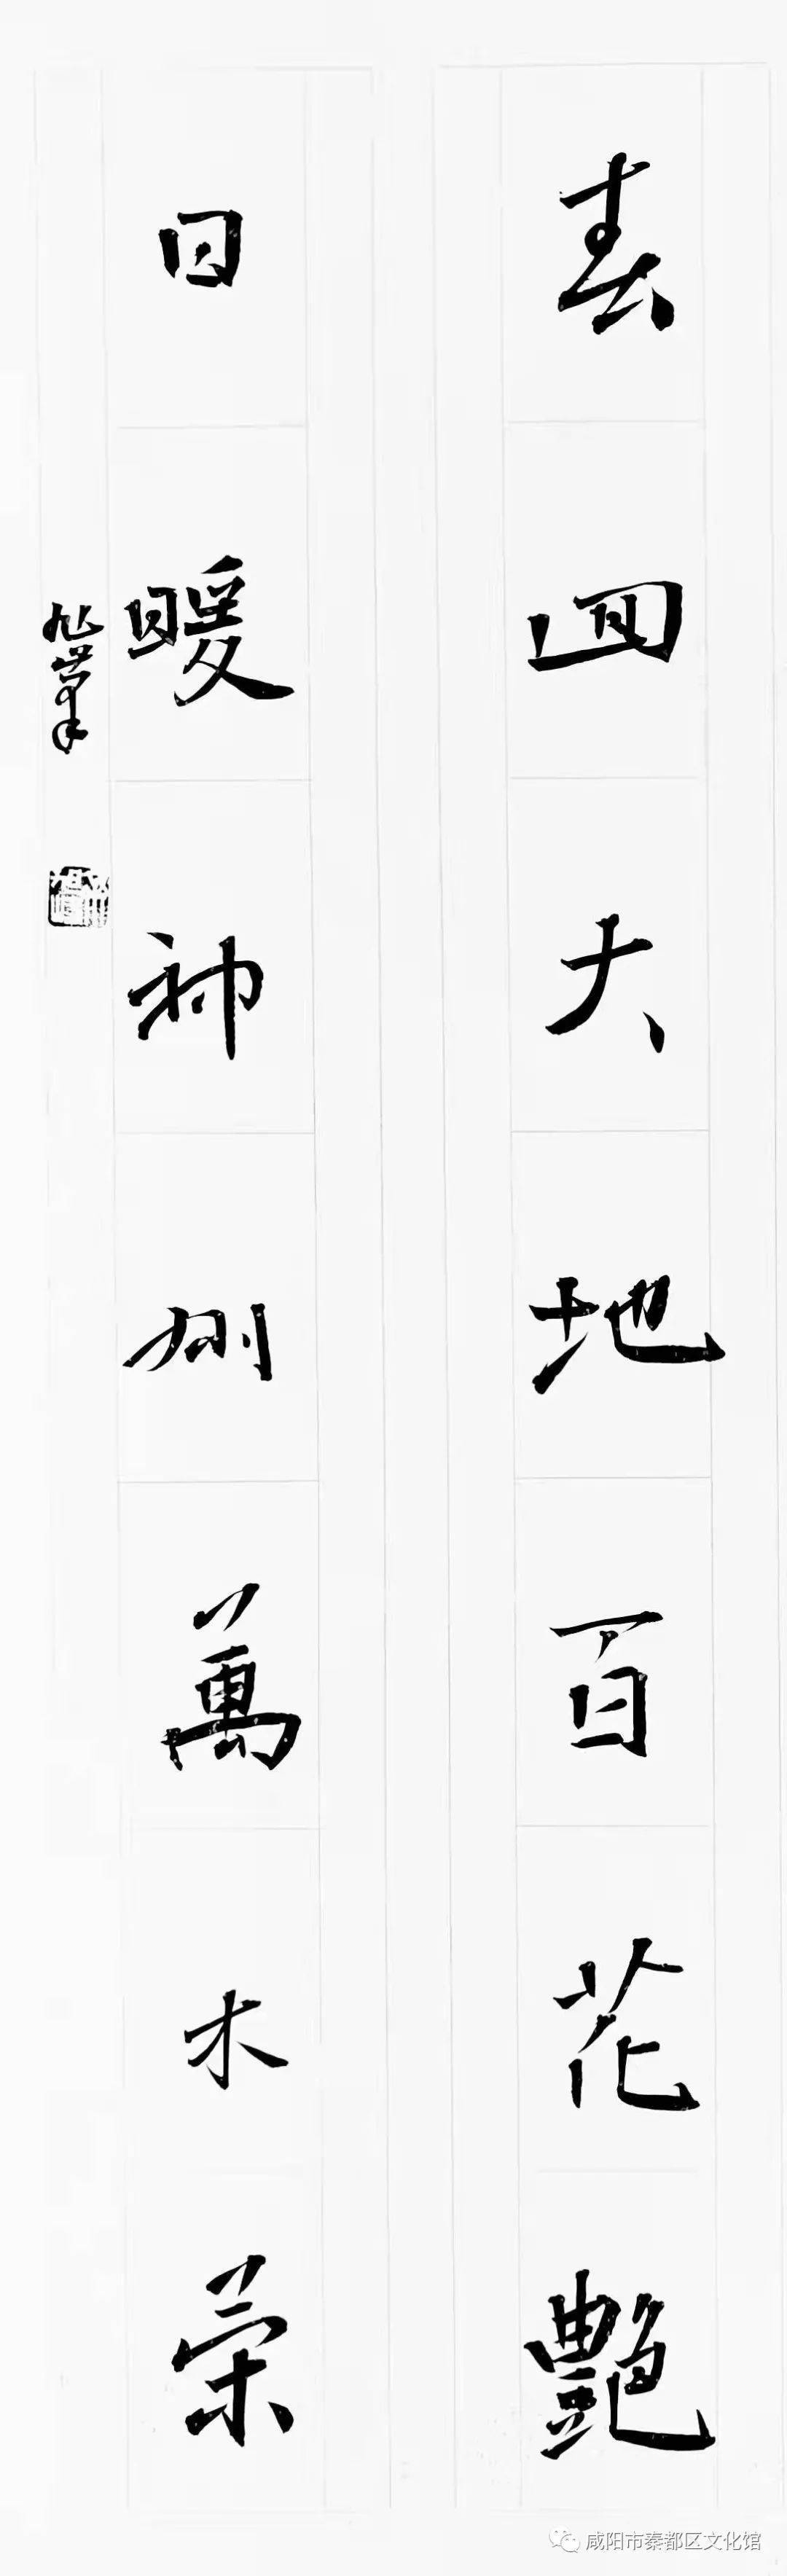 春回大地百花艷
日暖神州萬木榮
咸阳市秦都区文化馆